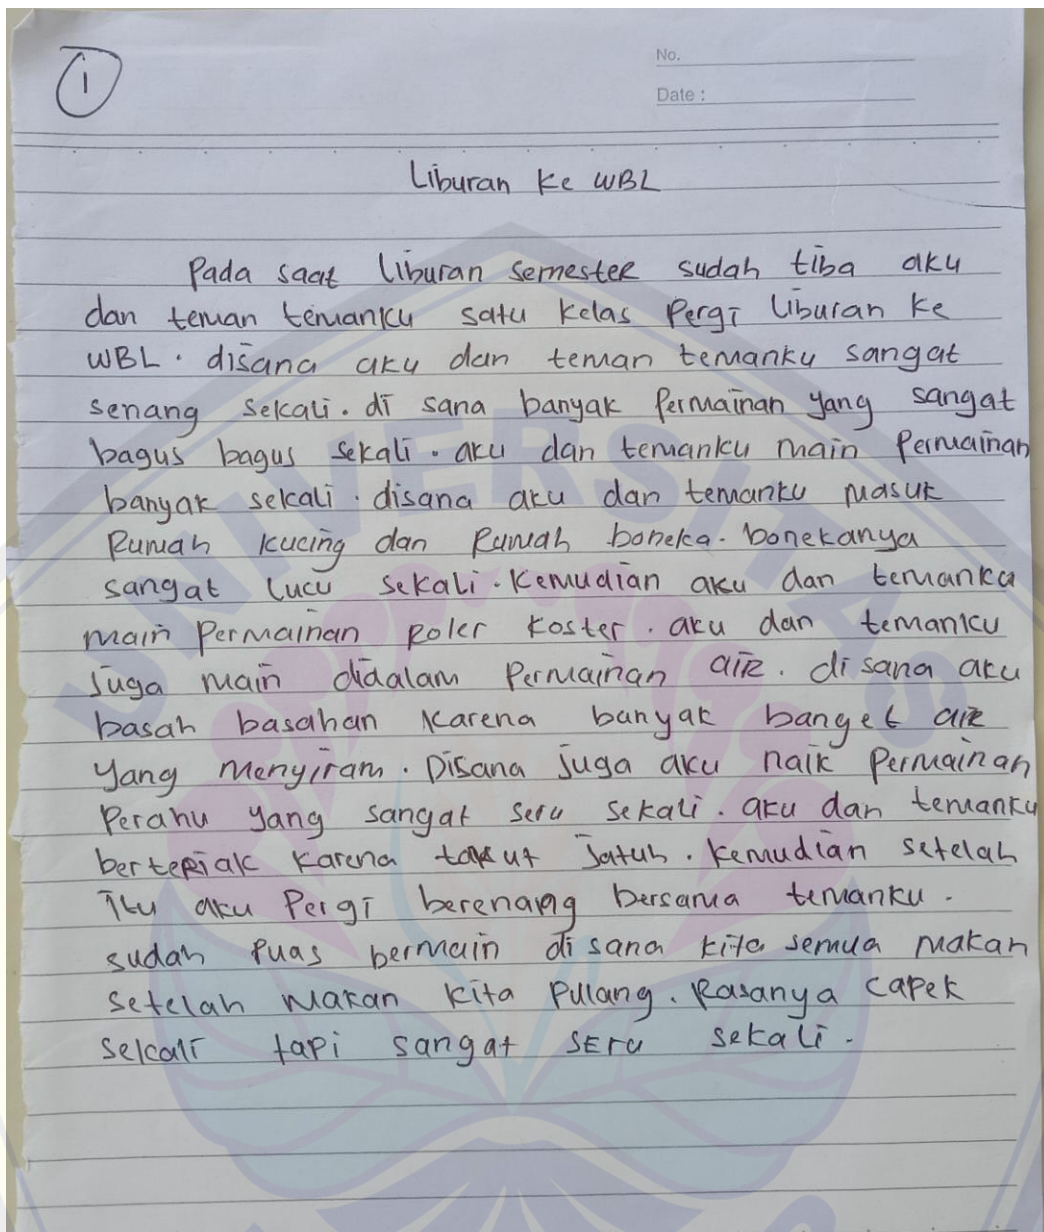 1
No.
Date :
Liburan ke WBL
Pada saat liburan semester sudah tiba aku
dan teman temanku satu kelas Pergi liburan ke
WBL. disana aku dan teman temanku sangat
senang sekali. di sana banyak Permainan yang sangat
bagus bagus sekali. aku dan temanku main Permainan
banyak sekali. disana aku dan temanku masuk
Rumah kucing dan Rumah boneka. bonekanya
sangat lucu sekali. kemudian aku dan temanku
main Permainan Roler koster. aku dan temanku
Juga main didalam Permainan air. di sana aku
basah basahan karena banyak banget air
yang menyiram. Disana juga aku naik Permainan
Perahu yang sangat seru sekali. aku dan temanku
berteriak karena takut Jatuh. kemudian setelah
itu aku Pergi berenang bersama temanku.
sudah Puas bermain di sana kita semua makan
setelah makan kita Pulang. Rasanya capek
sekali tapi sangat seru sekali.
UNIVERSITAS